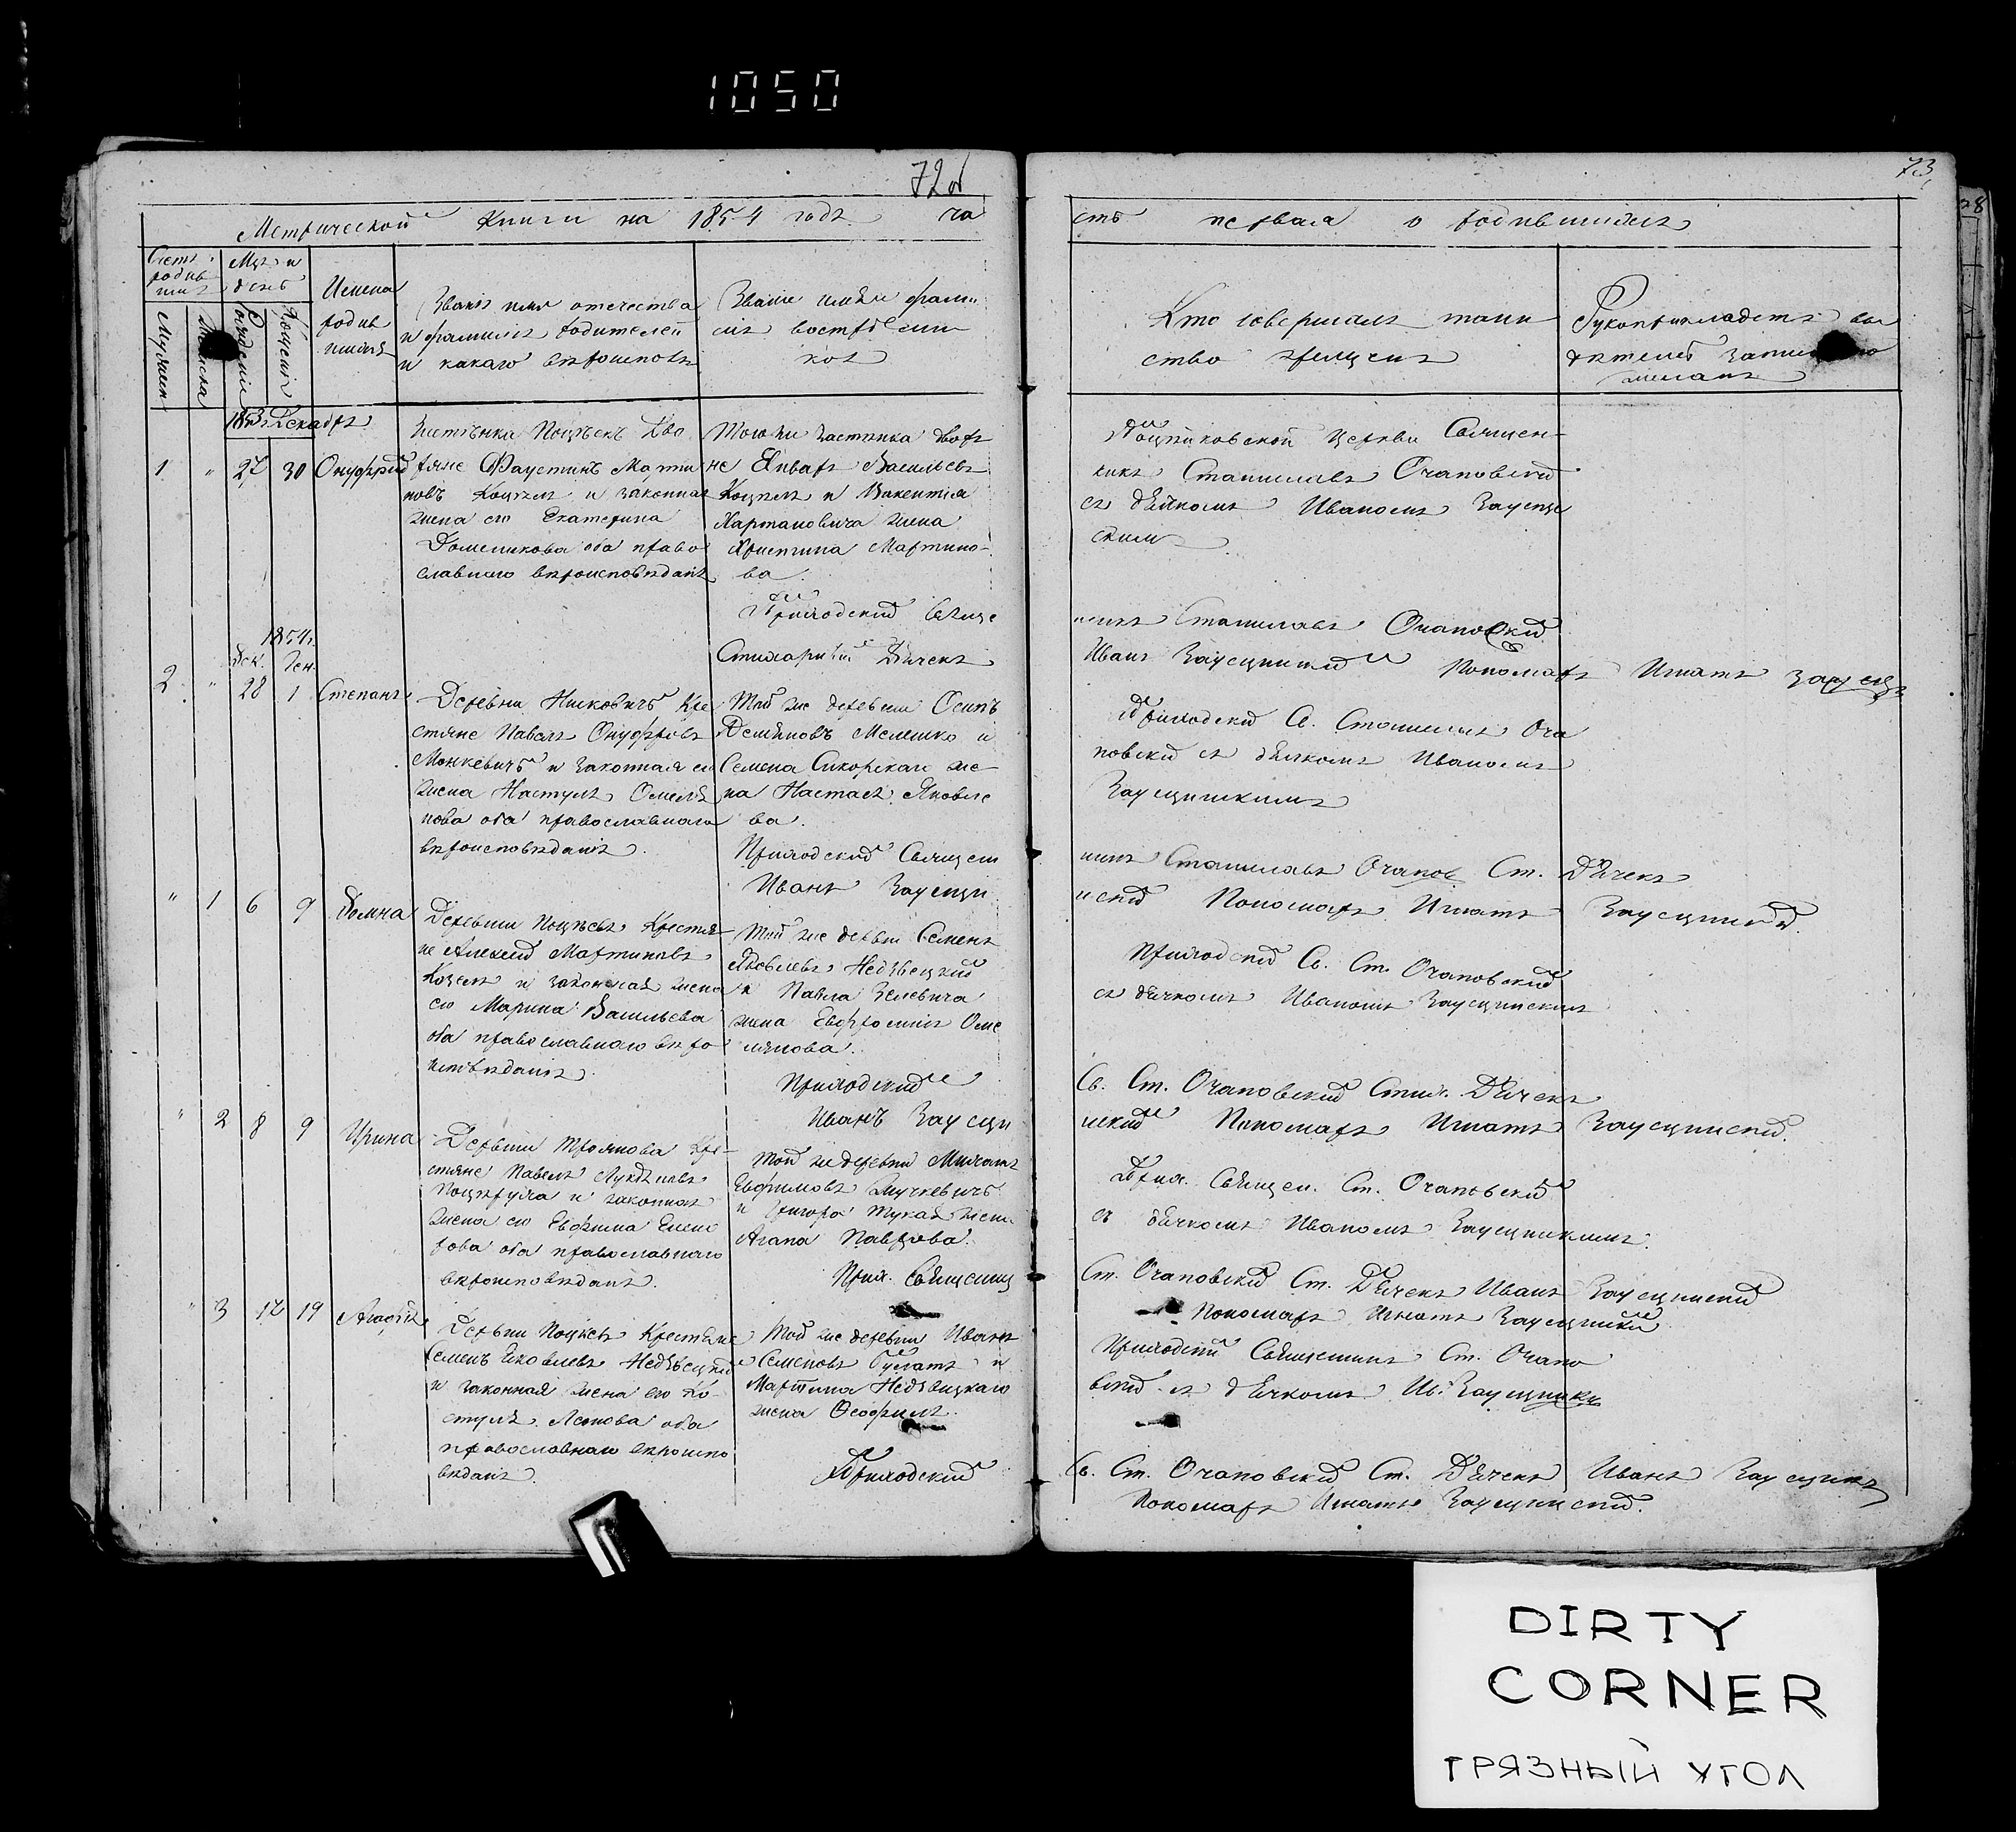 1050
72 об
73
Метрической Книги на 1854 годъ ча
сть первая о родившихся
Счетъ родив шихся
Мцъ и день
Мужеска
Женска
Рожденія
Крещенія
Имена
родив
шихся
Званіе имя отечество
и фамилія родителей
и какаго вѣроисповѣ
Званіе имя и фами
лія воспріемни
ковъ
Кто совершалъ таин
ство крещенія
Рукоприкладство сви
дѣтелей записи по
желанію
1853 Декабря
1 " 27 30 Онуфрій
Застѣнка Поцѣекъ Дво
ряне Фаустинъ Марти
новъ Коцѣлъ и законная
жена его Екатерина
Доменикова оба право
славнаго вѣроисповѣданія
Того же застѣнка Дворя
не Январъ Васильевъ
Коцѣлъ и Викентія
Хартановича жена
Христина Мартино-
ва.
Церкви Священ-
никъ Станиславъ Очаповскій
съ дьячкомъ Иваномъ Заусци
скимъ
Приходскій Свяще
никъ Станиславъ Очаповскій
Стихарный Дьячекъ
Иванъ Заусцинскій Пономарь Игнатъ Заусц
1854
Дек. Ген.
2 " 28 1 Степанъ
Деревни Нисковичъ Кре
стяне Павелъ Онуфріовъ
Монкевичъ и законная его
жена Настуля Омелья
нова оба православнаго
вѣроисповѣданія.
Той же деревни Осипъ
Демьяновъ Мелешко и
Семена Сикорскаго же-
на Настася Яковле
ва.
Приходскій Св. Станиславъ Оча
повскій съ дьячкомъ Иваномъ
Заусцинскимъ
Приходскій Священ
никъ Станиславъ Очапов Ст. Дьячекъ
Иванъ Заусци
нскій Пономарь Игнатъ Заусцинскій.
" 1 6 9 Домна
Деревни Поцѣевъ Крестья
не Алексей Мартиновъ
Коцелъ и законная жена
его Марина Васильева
оба православнаго вѣро
исповѣданія.
Той же деревни Семенъ
Яковлевъ Недзвецкій
и Павла Зелевича
жена Евфросинія Оме
лянова.
Приходскій Св. Ст. Очаповскій
съ дьячкомъ Иваномъ Заусцинскимъ
Приходскій
Св. Ст. Очаповскій Стих. Дьячекъ
Иванъ Заусци
нскій Пономарь Игнатъ Заусцинскій.
" 2 8 9 Ирина
Деревни Троянова Кре-
стяне Павелъ Лукьяновъ
и законная
жена его Евфима
оба православнаго
вѣроисповѣданія.
Той же деревни Михаилъ
Евфимовъ
и Григора жена
Агапа Павлова.
Прих. Священ. Ст. Очаповскій
съ дьячкомъ Иваномъ Заусцинскимъ.
Прих. Священник
Ст. Очаповскій Ст. Дьячекъ Иванъ Заусцинскій
Пономарь Игнатъ Заусцинскій
" 3 17 19 Агафія
Деревни Поцѣевъ Крестьяне
Семенъ Яковлевъ Недзвецкій
и законная жена его Ко-
стуля Леонова оба
православнаго вѣроиспо
вѣданія.
Той же деревни Иванъ
Семеновъ Булатъ и
Мартина Недзвицкаго
жена Ѳеофиля.
Приходскій Священникъ Ст. Очапо
вскій съ дьячкомъ Ив. Заусцински
Приходскій
Св. Ст. Очаповскій Ст. Дьячекъ Иванъ Заусцинскъ
Пономарь Игнатъ Заусцинскій.
28
DIRTY
CORNER
ГРЯЗНЫЙ УГОЛ